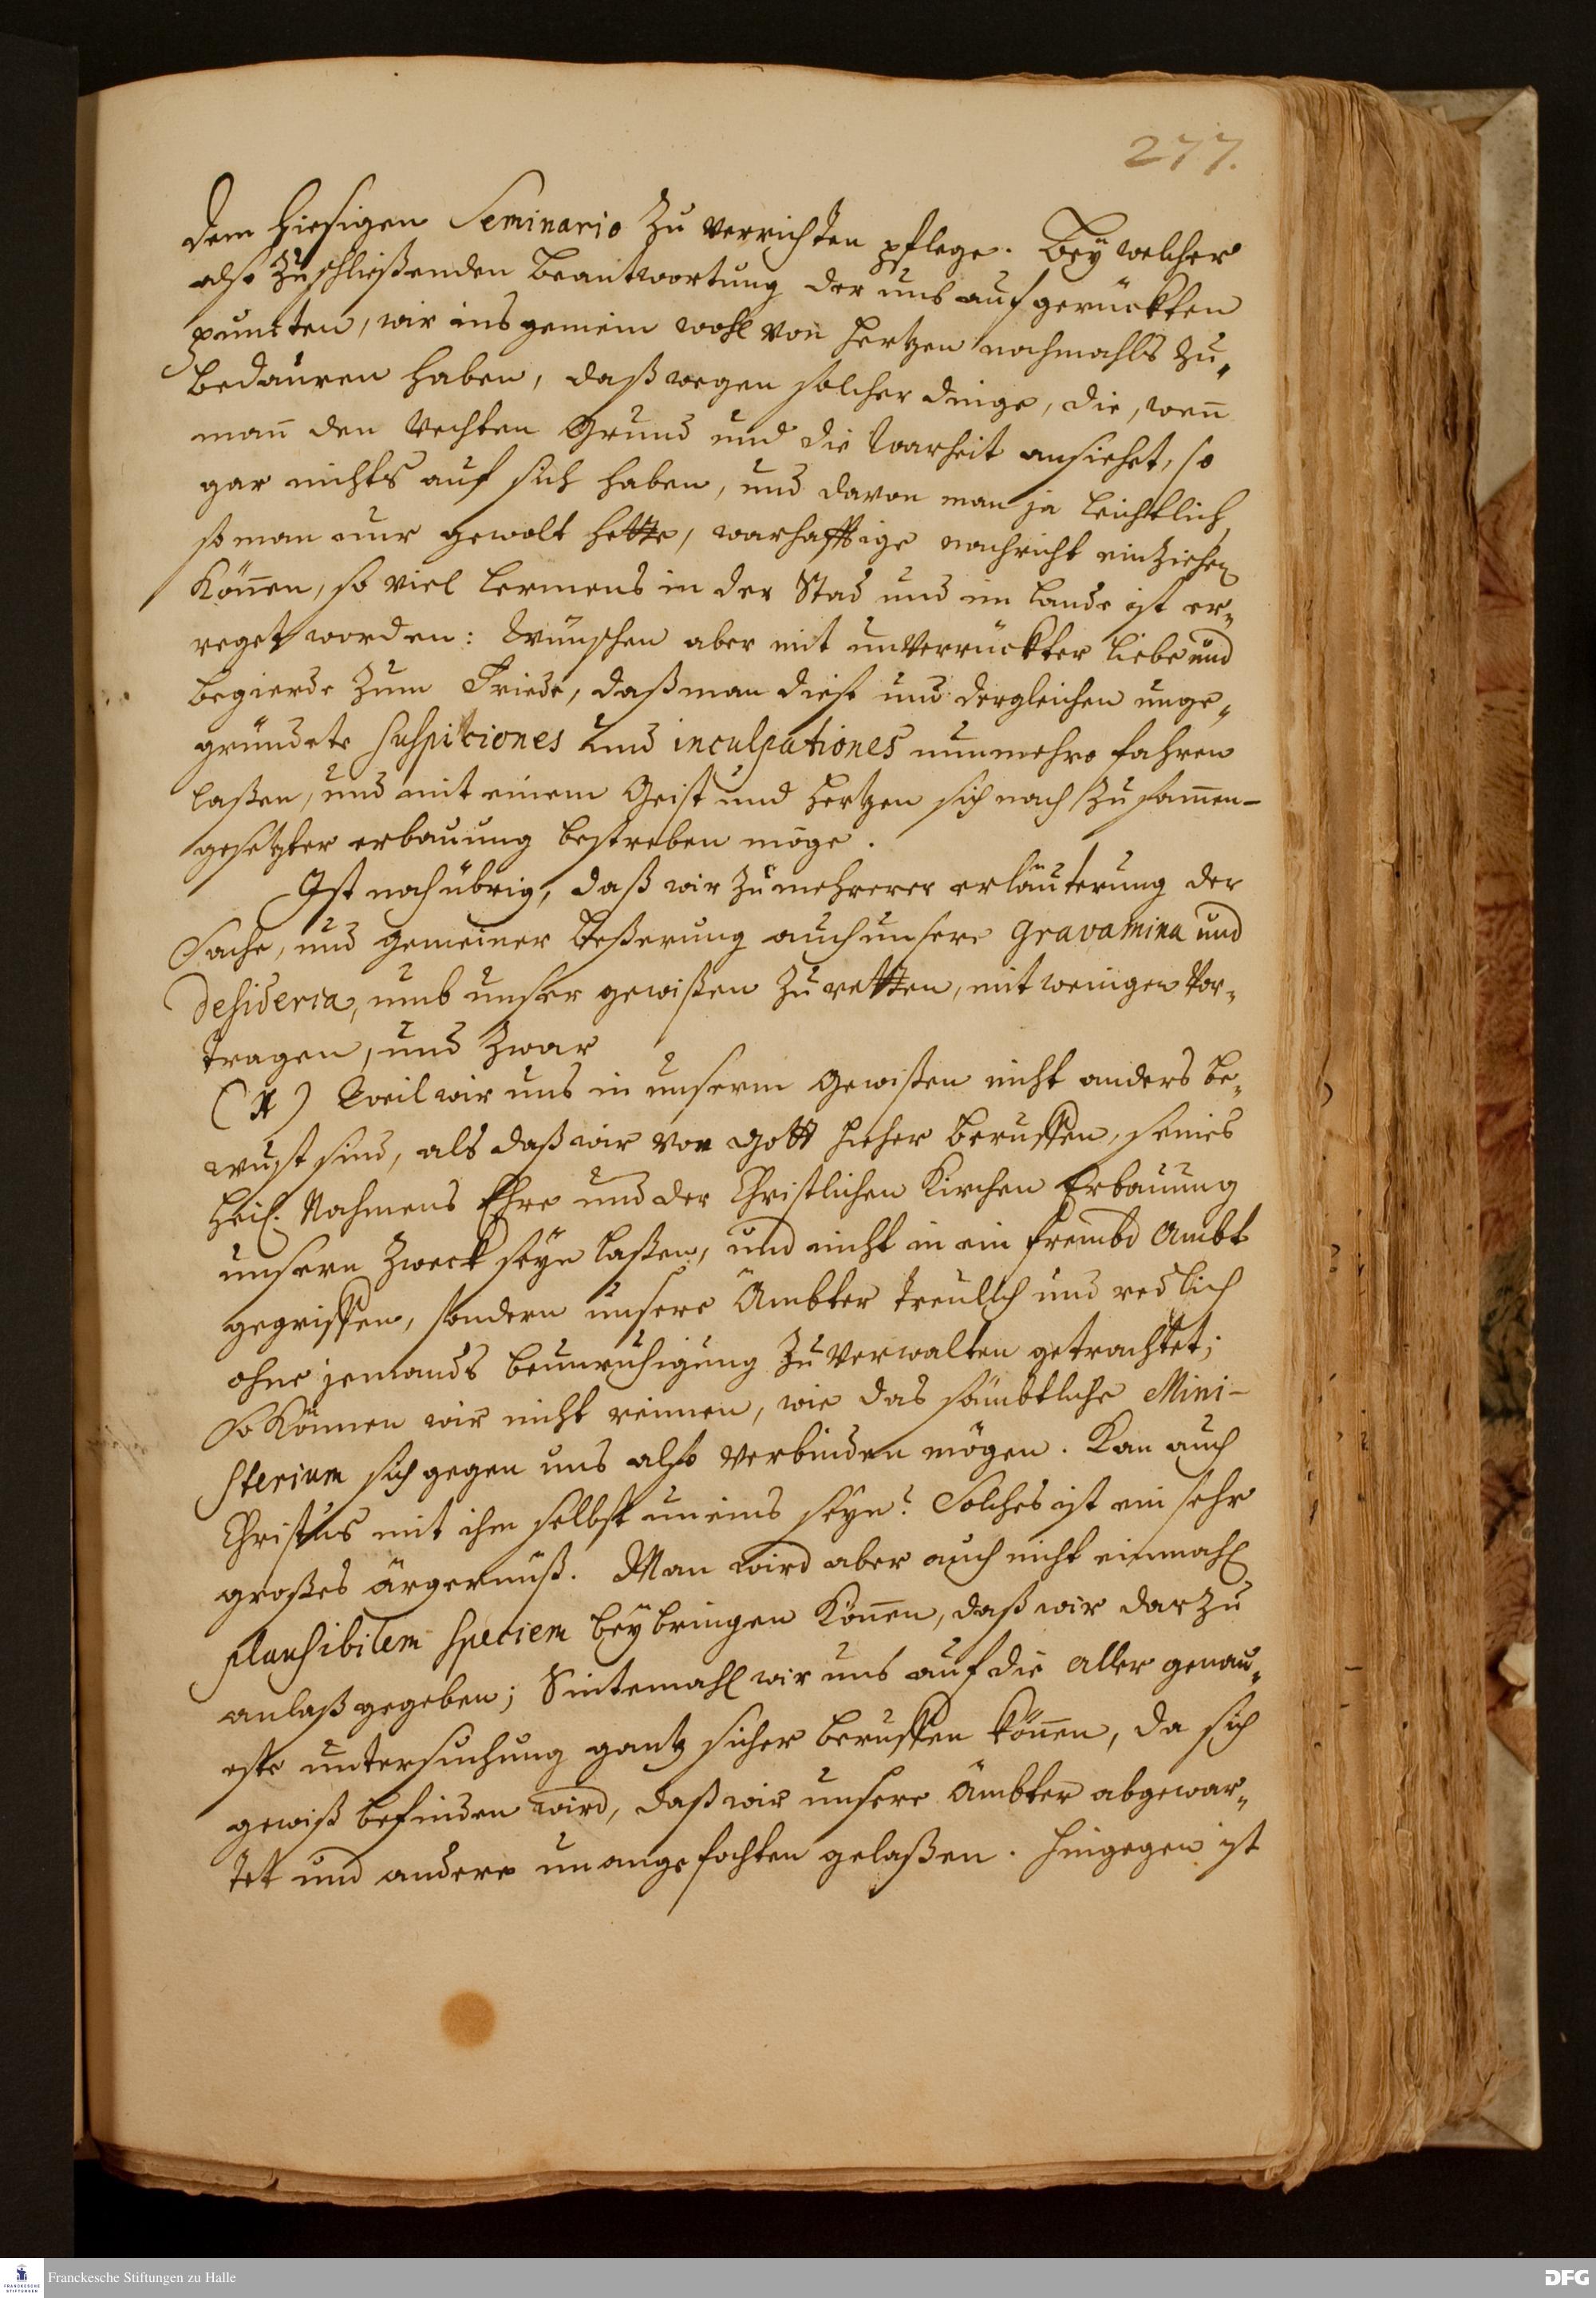 277.
dem hiesigen Seminario zu verrichten pflege. Bey welcher
also zuschließenden beantwortung der uns aufgerückten
puncten, wir ins gemein wohl von hertzen nochmahls zu„
bedauren haben, daß wegen solcher dinge, die, wen̅
man̅ den rechten Grund und die Warheit ansiehet, so
gar nichts auf sich haben, und davon man ja leichtlich
so man nur gewolt hette, warhafftige nachricht einziehen
kön̅en, so viel lermens in der Stad und im lande ist er„
reget worden: Wünschen aber mit unverrückter liebe und
begierde zum Friede, daß man diese und dergleichen unge„
gründete suspiciones und inculpationes nunmehro fahren
laßen, und mit einem Geist und hertzen sich nach zusam̅en-
gesetzter erbauung bestreben möge.
Ist noch übrig, daß wir zu mehrerer erläuterung der
Sache, und gemeiner beßerung auch unsere gravamina und
desideria, umb unser gewißen zu retten, mit wenigen vor„
tragen, und zwar
(1) Weil wir uns in unserm gewißen nicht anders be„
wust sind, als daß wir von Gott hieher beruffen, seines
heil. Nahmens Ehre und der Christlichen Kirchen Erbauung
unsern zweck seyn laßen, und nicht in ein frembd Ambt
gegriffen, sondern unsere Ämbter treulich und redlich
ohne jemands beunruhigung zu verwalten getrachtet;
So können wir nicht reimen, wie das sämbtliche Mini-
sterium sich gegen uns also verbinden mögen. Kan auch
Christus mit ihm selbst uneins seyn? Solches ist ein sehr
großes ärgernüß. Man wird aber auch nicht einmahl
plausibilem speciem beybringen kön̅en, daß wir darzu
anlaß gegeben; Sintemahl wir uns auf die aller genau„
este untersuchung gantz sicher beruffen kön̅en, da sich
gewiß befinden wird, daß wir unsere Ämbter abgewar„
tet und andere unangefochten gelaßen. Hingegen ist
Franckesche Stiftungen zu Halle
DFG